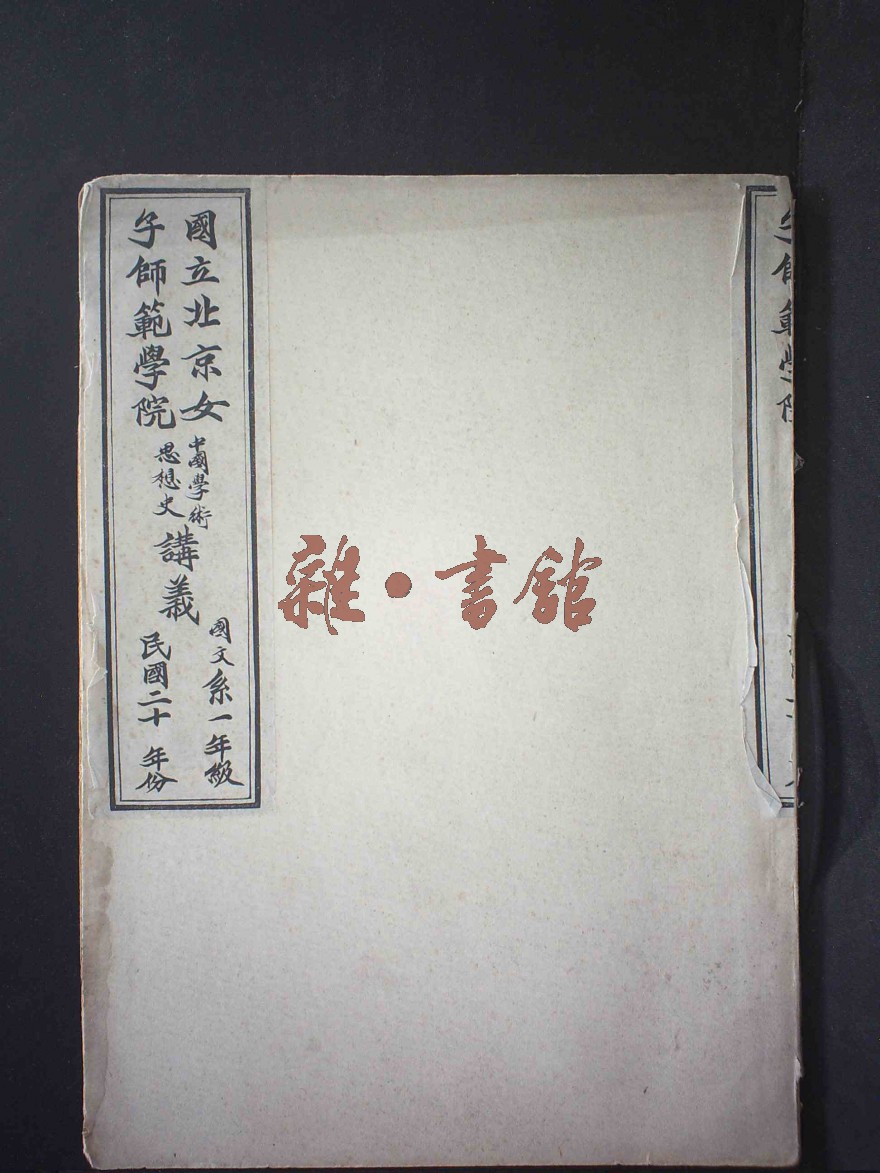 國立北京女
子師範學院
中國學術
思想史
講義
國文系一年級
民國二十 年份
雜·書館
子師範學院